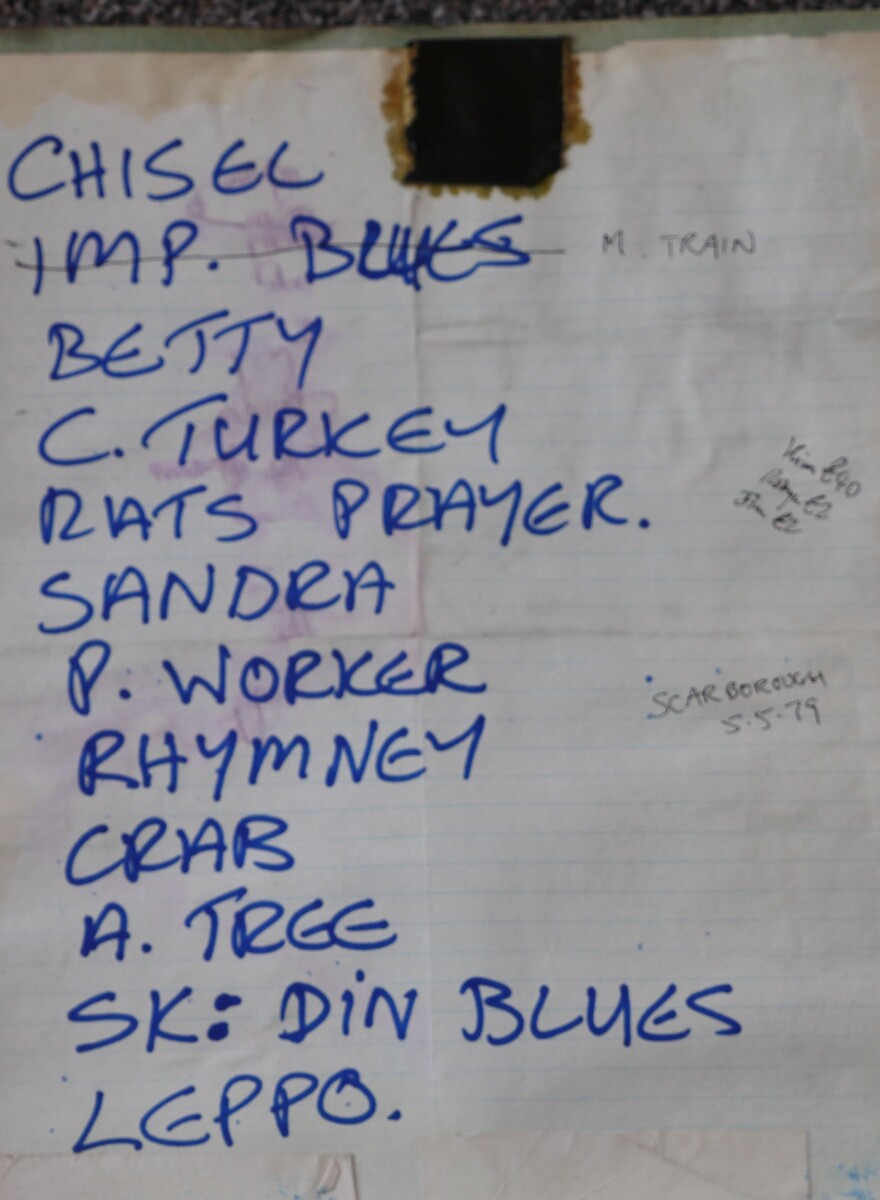 CHISEL
IMP. BLUES M. TRAIN
BETTY
C. TURKEY
RATS PRAYER.
SANDRA
P. WORKER
SCARBOROUGH
5.5.79
RHYMNEY
CRAB
A. TREE
SK: DIN BLUES
LEPPO.